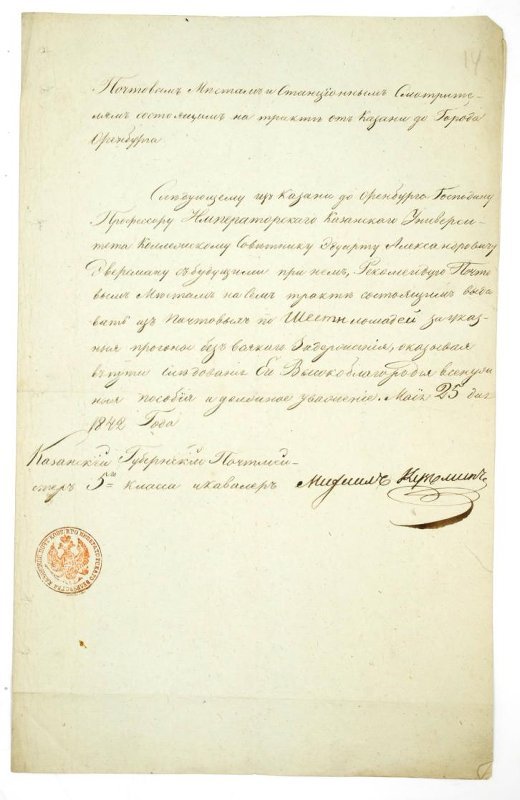 14
Почтовымъ Мѣстамъ и Станціоннымъ Смотрите-
лямъ состоящимъ на трактѣ отъ Казани до Города
Оренбурга
Слѣдующему изъ Казани до Оренбурга Господину
Профессору Императорскаго Казанскаго Универси-
тета Коллежскому Совѣтнику Эдуарту Александровичу
Эверсману съ будущими при немъ, Рекомендую Почто
вымъ Мѣстамъ на семъ трактѣ состоящимъ выда
вать изъ почтовыхъ по Шести лошадей за указ
ныя прогоны безъ всякаго Задержанія, оказывая
въ пути слѣдованія Его Высокоблагородія
пособія и должное уваженіе. Маія 25 дня
1842 Года
Казанскій Губернскій Почтмей-
стеръ 5го класса и кавалеръ Михаилъ